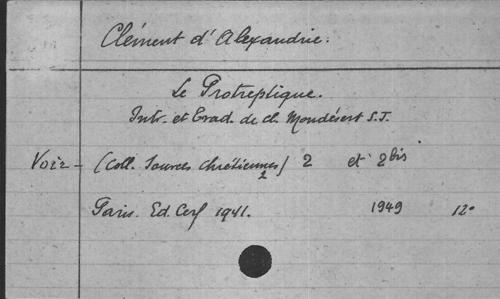 Clément d'Alexandrie.
Le Protreptique.
Intr. et Trad. de Cl. Mondésert S.J.
Voir - (Coll. Sources Chrétiennes) 2 et 2 bis
2
Paris. Ed. Cerf 1941. 1949 12°